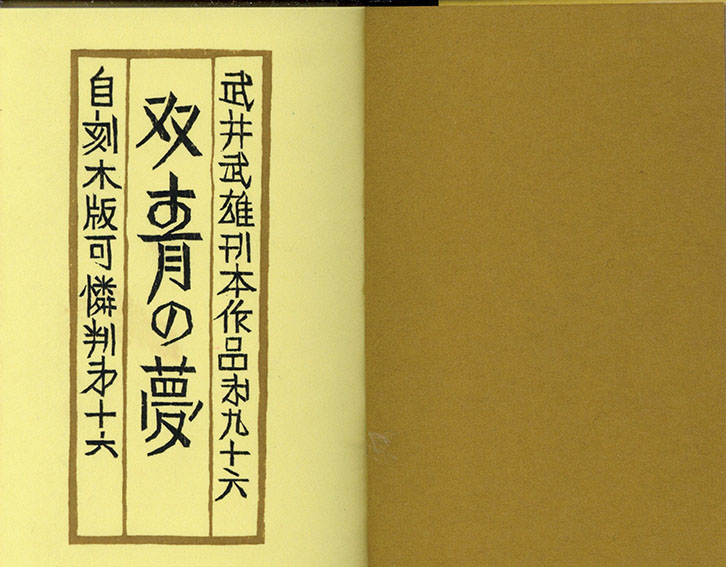 武井武雄刊本作品㐧九十六
双青の夢
自刻木版可憐判㐧十六